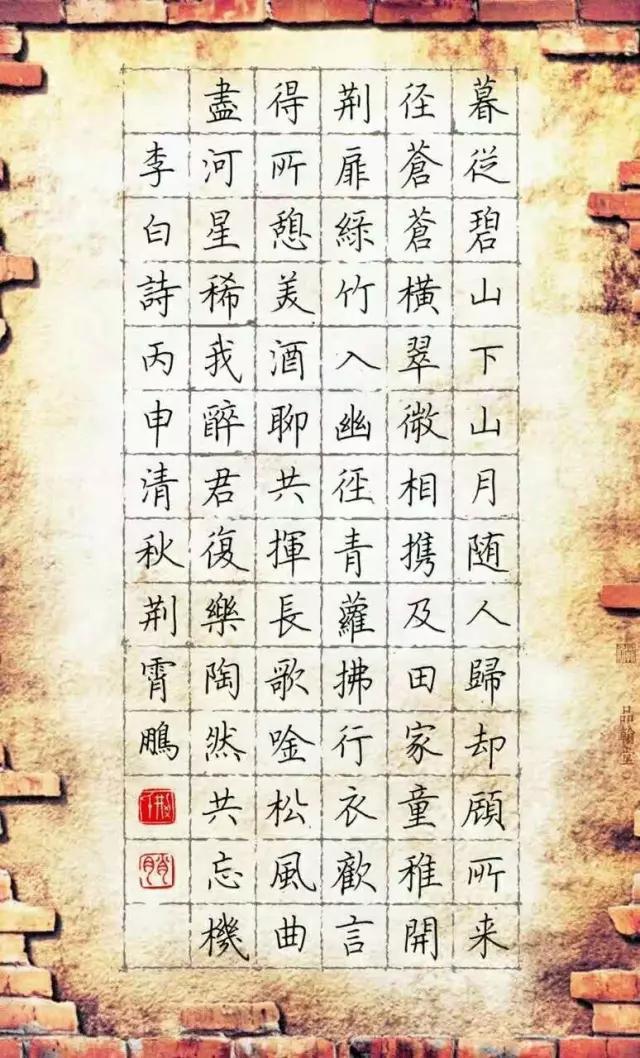 暮從碧山下山月随人歸却顧所来
径蒼蒼橫翠微相携及田家童稚開
荆扉綠竹入幽徑青蘿拂行衣歡言
得所憩美酒聊共揮長歌唫松風曲
盡河星稀我醉君復樂陶然共忘機
李白詩丙申清秋荆霄鵬
品翰堂